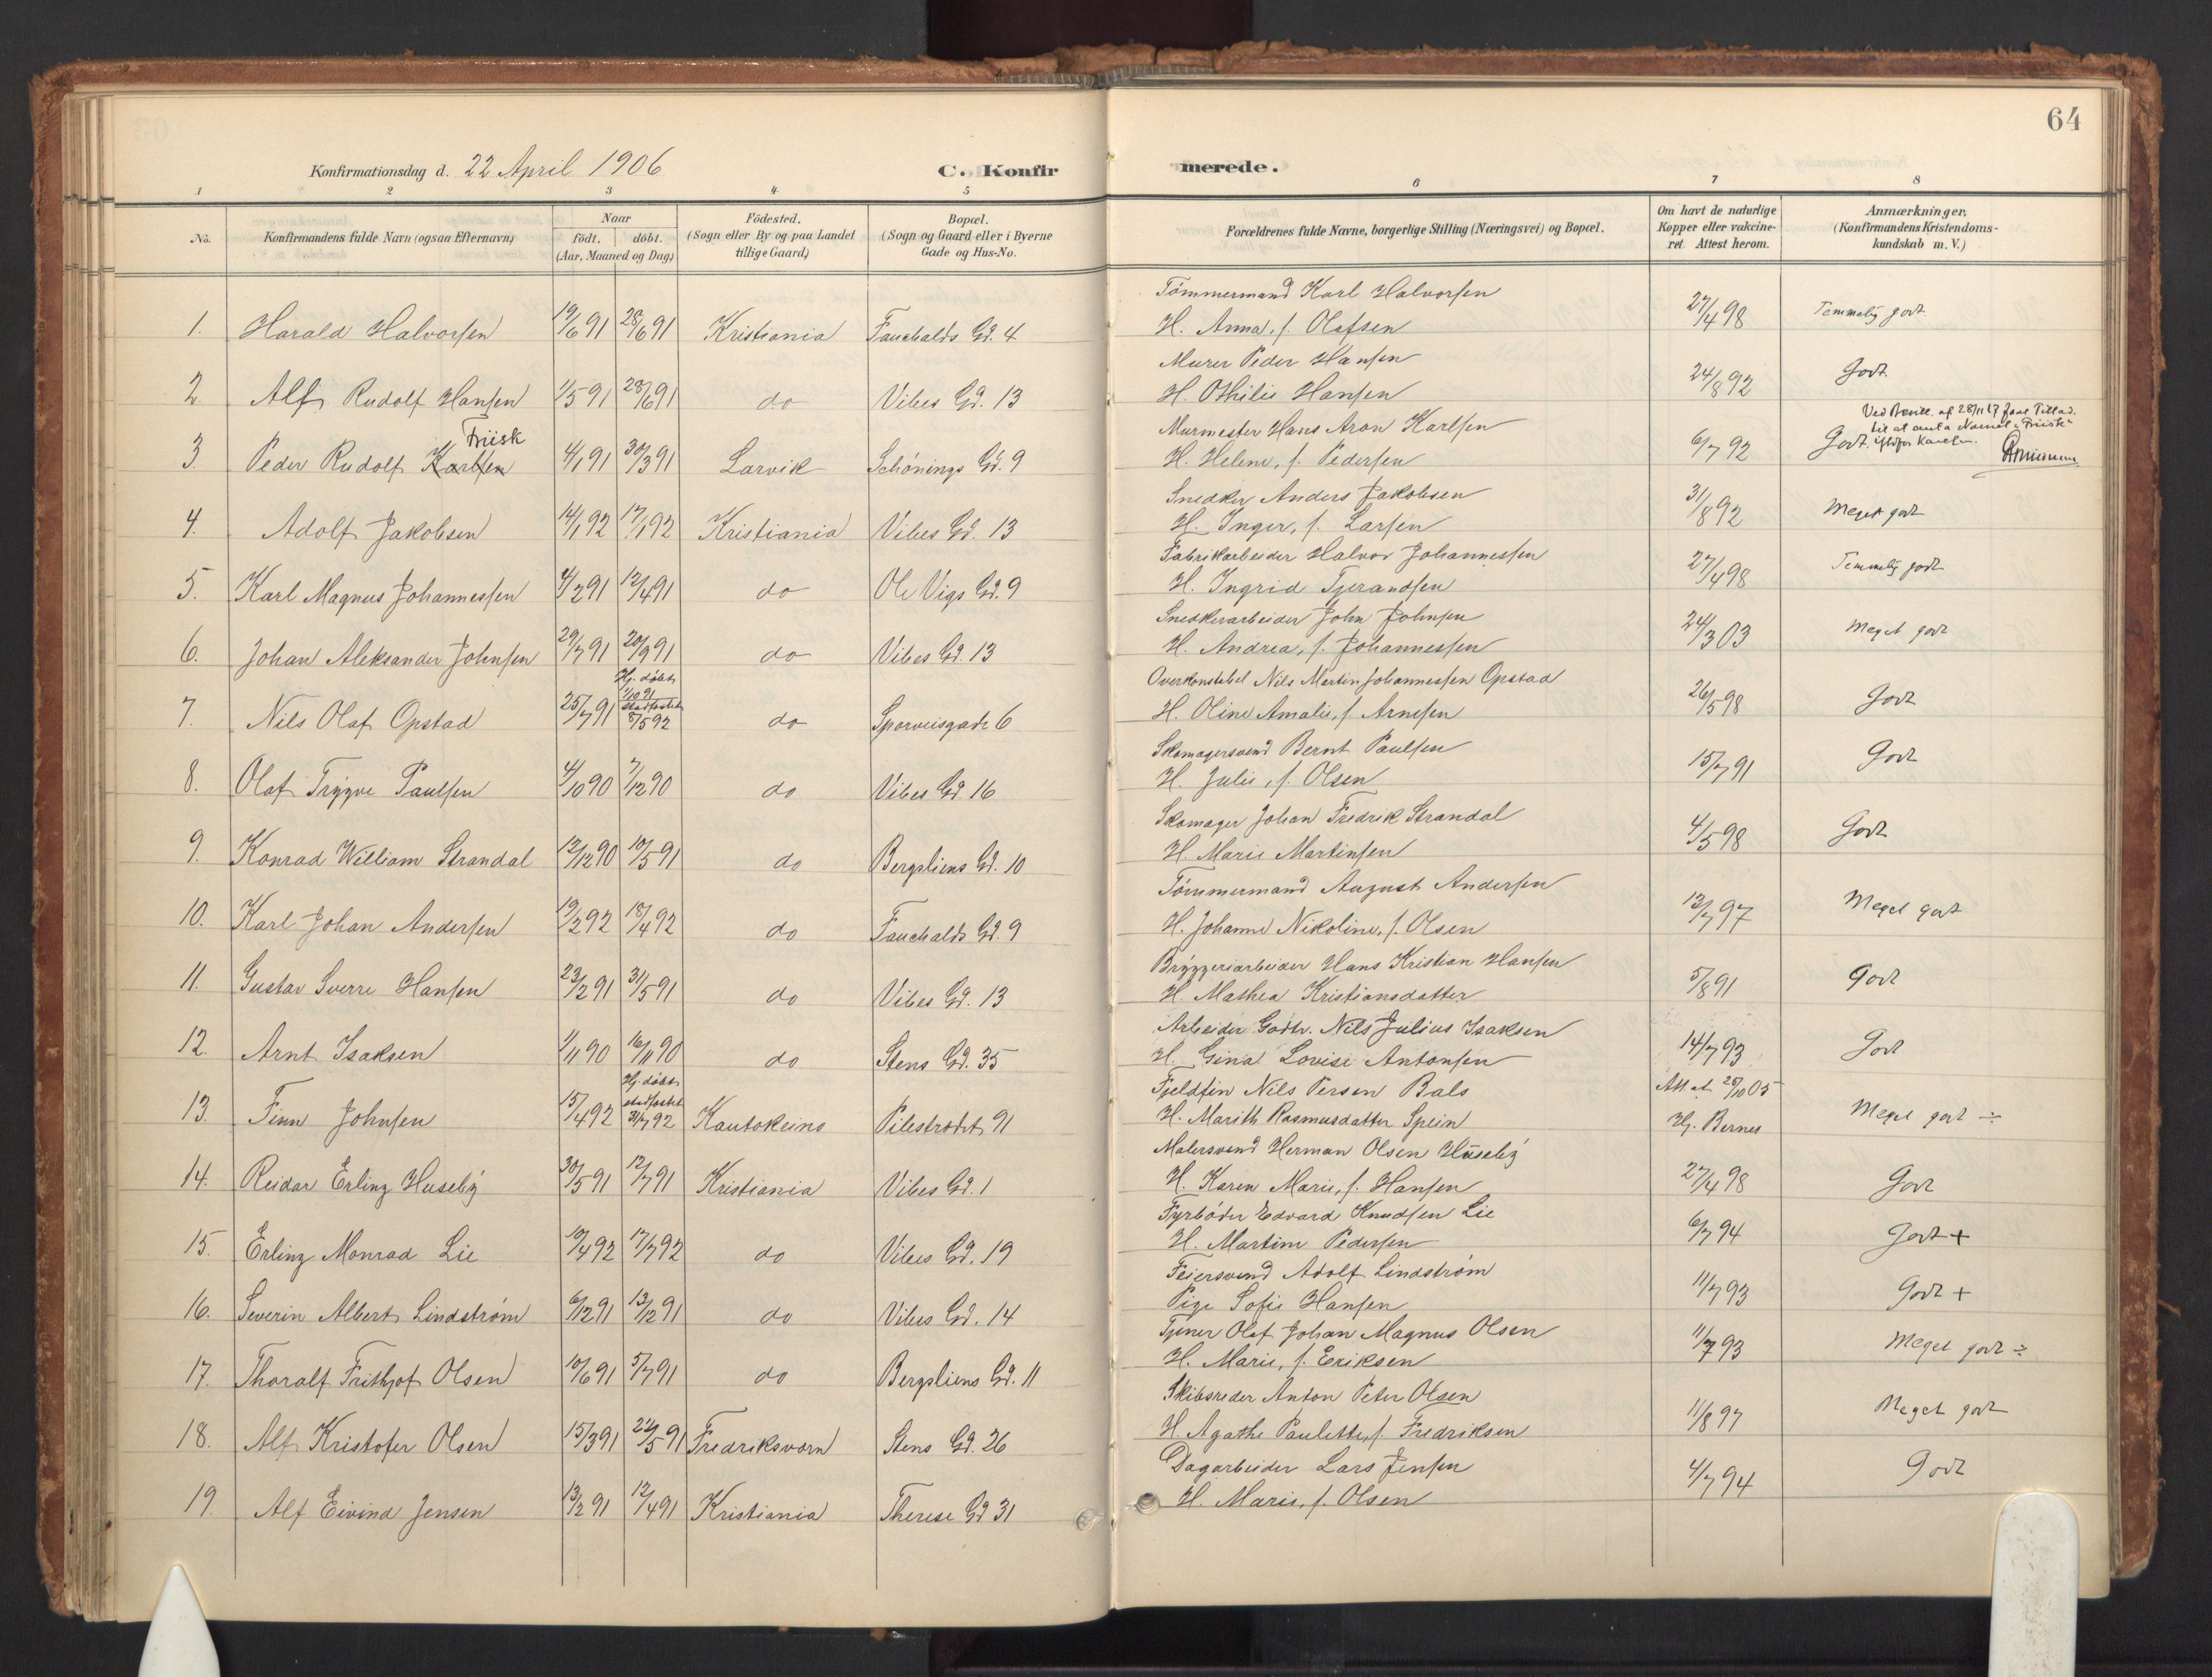 64
Konfirmationsdag d. 22 April 1906 C. Konfirmerede.
1 2 3 4. 5 6 7 8
No. Konfirmandens fulde Navn (ogsaa Efternavn) Naar født. døbt. (Aar, Maaned og Dag) Fødested. (Sogn eller By og paa Landet tillige Gaard) Bopæl. (Sogn og Gaard eller i Byerne Gade og Hus-No. Forældrenes fulde Navne, borgerlige Stilling (Næringsvei) og Bopæl. Om havt de naturlige Kopper eller vakcineret. Attest herom. Anmærkninger. (Konfirmandens Kristendomskundskab m. V.)
Tømmermand Karl Halvorsen
1. Harald Halvorsen 19/6 91 28/6 91 Kristiania Fauchalds Gd. 4 H. Anna, f. Olafsen 27/4 98 Temmelig godt.
Murer Peder Hansen
2. Alf Rudolf Hansen 1/5 91 28/6 91 do Vibes Gd. 13 H. Othilie Hansen 24/8 92 Godt.
Friisk Murmester Hans Aron Karlsen Ved Bevill. af 28/11 17 faaet Tillad. til at anta Navnet "Friisk"
3. Peder Rudolf Karlsen 4/1 91 30/3 91 Larvik Schønings Gd. 9 H. Helene, f. Pedersen 6/7 92 Godt. istedfor Karlsen.
Snedker Anders Jakobsen
4. Adolf Jakobsen 14/1 92 17/1 92 Kristiania Vibes Gd. 13 H. Inger, f. Larsen 31/8 92 Meget godt
Fabrikarbeider Halvor Johannessen
5. Karl Magnus Johannessen 4/2 91 12/4 91 do Ole Vigs Gd. 9 H. Ingrid Tjerandsen 27/4 98 Temmelig godt
Snedkerarbeider John Johnsen
6. Johan Aleksander Johnsen 29/7 91 20/9 91 do Vibes Gd. 13 H. Andrea, f. Johannessen 24/3 03 Meget godt
Hj. døbt 1/10 91 stadfæstet Overkonstabel Nils Martin Johannessen Opstad
7. Nils Olaf Opstad 25/7 91 8/5 92 do Sporveisgade 6 H. Oline Amalie, f. Arnesen 26/5 98 Godt
Skomagersvend Bernt Paulsen
8. Olaf Trygve Paulsen 4/10 90 7/12 90 do Vibes Gd. 16 H. Julie, f. Olsen 15/7 91 Godt
Skomager Johan Fredrik Strandal
9. Konrad William Strandal 12/12 90 10/5 91 do Bergsliens Gd. 10 H. Marie Martinsen 4/5 98 Godt
Tømmermand August Andersen
10. Karl Johan Andersen 19/2 92 18/4 92 do Fauchalds Gd. 9 H. Johanne Nikoline, f. Olsen 13/7 97 Meget godt
Bryggeriarbeider Hans Kristian Hansen
11. Gustav Sverre Hansen 23/2 91 31/5 91 do Vibes Gd. 13 H. Mathea Kristiansdatter 5/8 91 Godt
Arbeider Godtr. Nils Julius Isaksen
12. Arnt Isaksen 1/11 90 16/11 90 do Stens Gd. 35 H. Gina Lovise Antonsen 14/7 93 Godt
Hj. døbt stadfæstet Fjeldfin Nils Persen Bals Att at 20/10 05
13. Finn Johnsen 15/4 92 31/7 92 Kautokeino Pilestrædet 91 H. Marith Rasmusdatter Spein Hj. Berner Meget godt ÷
Malersvend Herman Olsen Huseby
14. Reidar Erling Huseby 30/5 91 12/7 91 Kristiania Vibes Gd. 1 H. Karen Marie, f. Hansen 27/4 98 Godt
Fyrbøder Edvard Knudsen Lie
15. Erling Monrad Lie 10/4 92 17/7 92 do Vibes Gd. 19 H. Martine Pedersen 6/7 94 Godt +
Feiersvend Adolf Lindstrøm
16. Severin Albert Lindstrøm 6/12 91 13/12 91 do Vibes Gd. 14 Pige Sofie Hansen 11/7 93 Godt +
Tjener Olaf Johan Magnus Olsen
17. Thoralf Frithjof Olsen 10/6 91 5/7 91 do Bergsliens Gd. 11 H. Marie, f. Eriksen 11/7 93 Meget godt ÷
Skibsreder Anton Peter Olsen
18. Alf Kristofer Olsen 15/3 91 24/5 91 Fredriksværn Stens Gd. 26 H. Agathe Paulette, f. Fredriksen 11/8 97 Meget godt
Dagarbeider Lars Jensen
19. Alf Eivind Jensen 13/2 91 12/4 91 Kristiania Therese Gd 31 H. Marie, f. Olsen 4/7 94 Godt